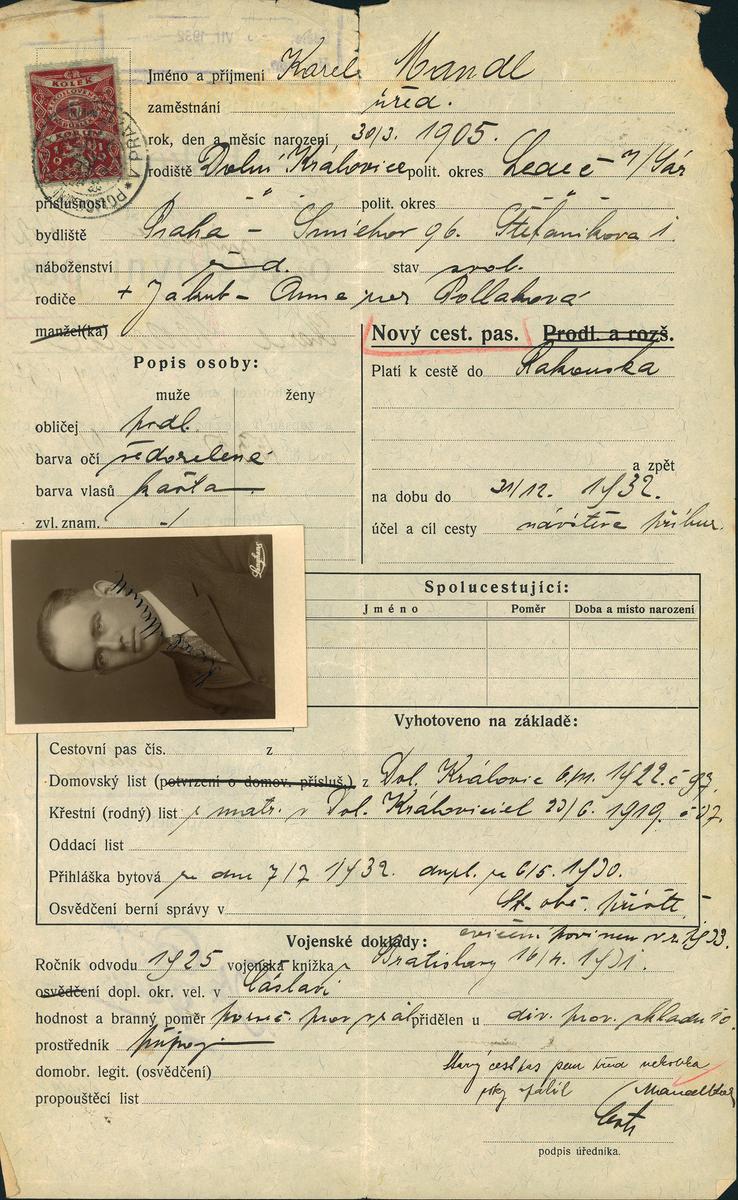 VII. 1932
KOLEK
Jméno a příjmení Karel Mandl
zaměstnání úřed.
rok, den a měsíc narození 30/3. 1905.
rodiště Dolní Královice polit. okres Ledeč n/Sáz
příslušnost - " - polit. okres - " -
bydliště Praha – Smíchov 96. Štefánikova 1.
náboženství žid. stav svob.
rodiče + Jakub – Anna roz Pollaková
manžel(ka)
Nový cest. pas. Prodl. a rozš.
Popis osoby:
muže ženy
obličej podl.
barva očí šedozelené
barva vlasů kašta
zvl. znam. -/
Platí k cestě do Rakouska
a zpět
na dobu do 31/12. 1932.
účel a cíl cesty návštěva příbuz.
Langhans
Spolucestující:
Jméno Poměr Doba a místo narození
Vyhotoveno na základě:
Cestovní pas čís. z
Domovský list (potvrzení o domov. přísluš.) z Dol. Královic 1922. č 97.
Křestní (rodný) list z matr. v Dol. Královicích 23/6. 1919. č
Oddací list
Přihláška bytová ze dne 7/7 1932. dupl. ze 6/5. 1930.
Osvědčení berní správy v St. obč. přísl.
cvičení povinen v r. 1933.
Vojenské doklady:
Ročník odvodu 1925 vojenská knížka z Bratislavy 16/4. 1931.
osvědčení dopl. okr. vel. v Čáslavi
hodnost a branný poměr přidělen u div. prov. skladu 10.
prostředník
domobr. legit. (osvědčení)
Starý cest pas
propouštěcí list
podpis úředníka.